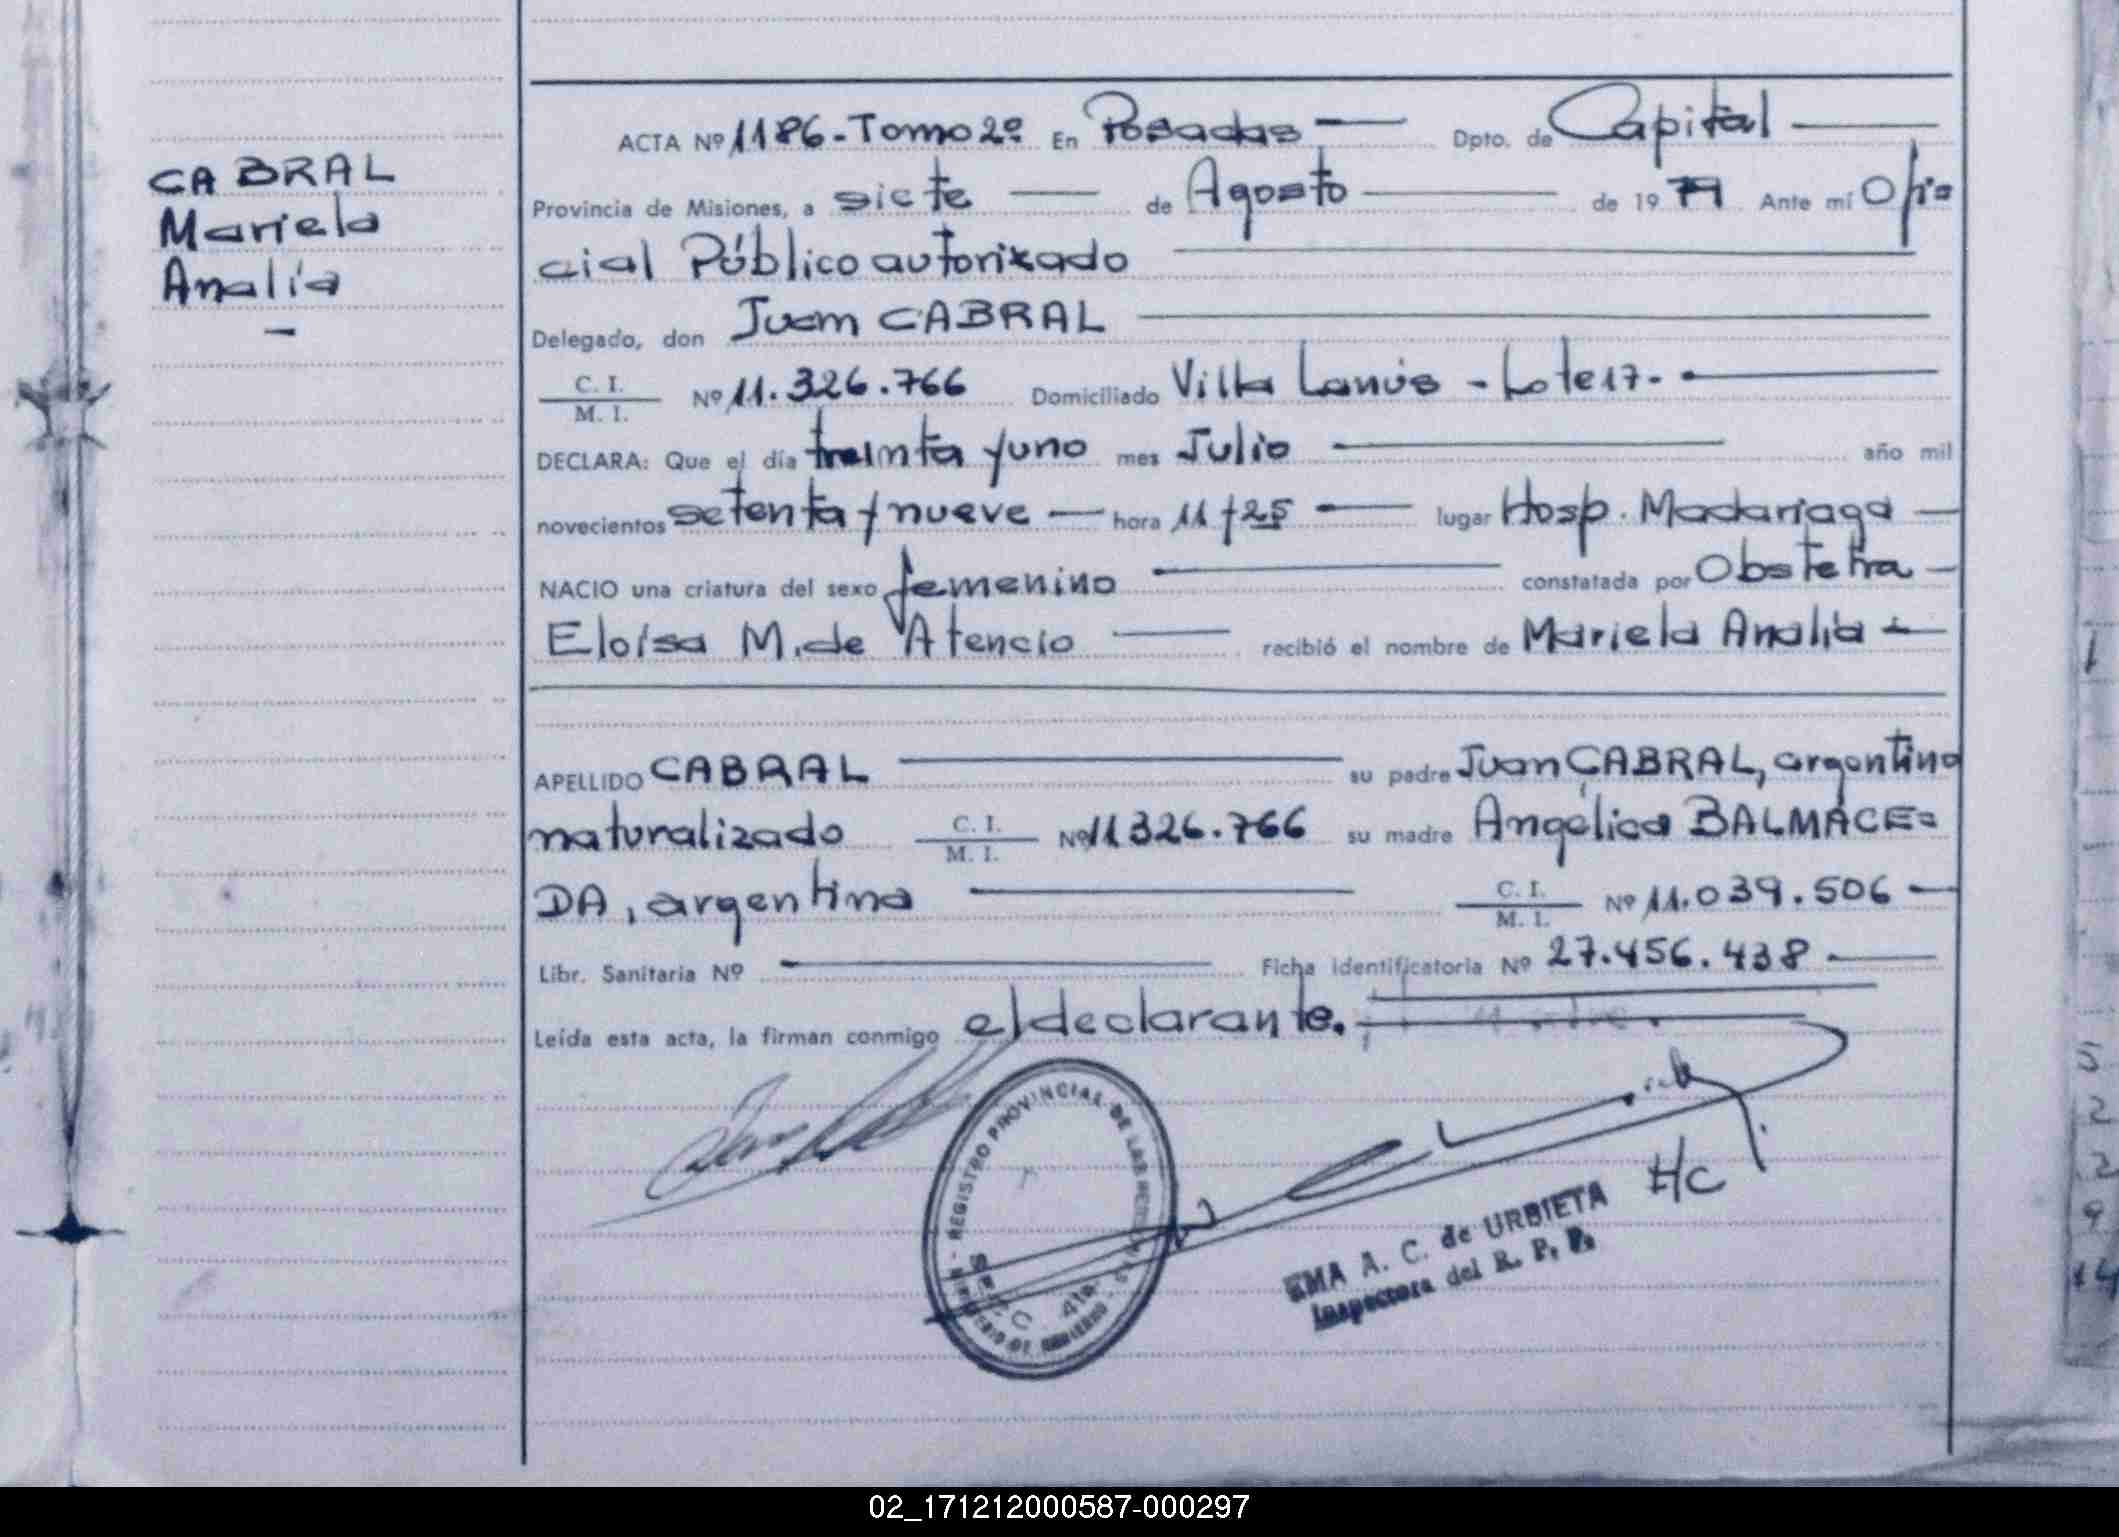 CABRAL
Mariela
Analía
ACTA Nº 1186-Tomo 2º En Posadas — Dpto. de Capital —
Provincia de Misiones, a siete — de Agosto — de 19 79 Ante mí Ofi=
cial Público autorizado
Delegado, don Juan CABRAL
C. I. / M. I. Nº 11.326.766 Domiciliado Villa Lanús - Lote 17.-
DECLARA: Que el día treinta y uno mes Julio — año mil
novecientos setenta y nueve — hora 11 y 25 — lugar Hosp. Madariaga —
NACIO una criatura del sexo femenino — constatada por Obstetra —
Eloísa M. de Atencio — recibió el nombre de Mariela Analía —
APELLIDO CABRAL — su padre Juan CABRAL, argentino
naturalizado C. I. / M. I. Nº 11326.766 su madre Angélica BALMACE=
DA, argentina — C. I. / M. I. Nº 11.039.506 —
Libr. Sanitaria Nº — Ficha identificatoria Nº 27.456.438 —
Leída esta acta, la firman conmigo el declarante.
REGISTRO PROVINCIAL DE LAS PERSONAS
H/C
EMA A. C. de URBIETA
Inspectora del R. P. P.
5
2
2
9
14
02_171212000587-000297